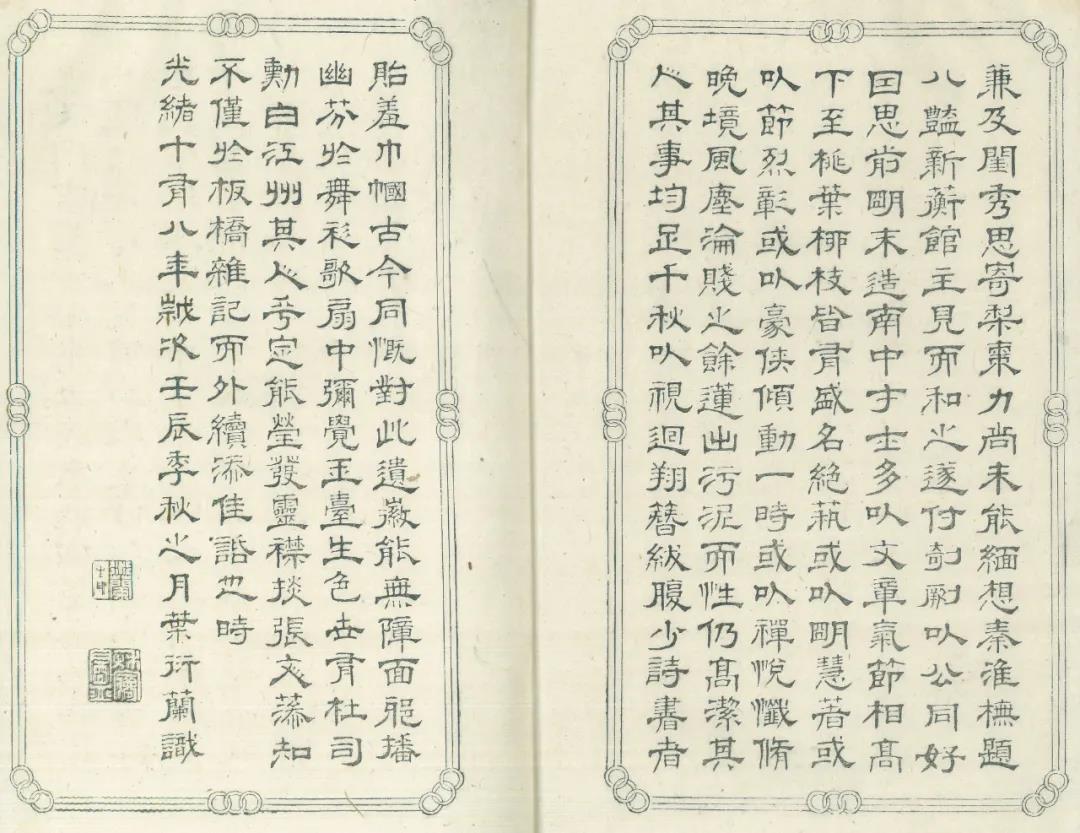 兼及閨秀思寄梨棗力尚未能緬想秦淮橅題
八豔新蘅館主見而和之遂付剞劂以公同好
回思前朙末造南中才士多以文章氣節相高
下至桃葉桺枝皆有盛名絕蓺或以朙慧著或
以節烈彰或以豪俠傾動一時或以禪悅懺脩
晚境風塵淪賤之餘蓮出污泥而性仍高潔其
人其事均足千秋以視迴翔簪紱腹少詩書者
貽羞巾幗古今同慨對此遺徽能無障面祀播
幽芬於舞衫歌扇中彌覺玉臺生色世有杜司
勳白江州其人乎定能瑩發靈襟掞張文藻知
不僅於板橋雜記而外續添佳話也時
光緒十有八年歲次壬辰季秋之月葉衍蘭識